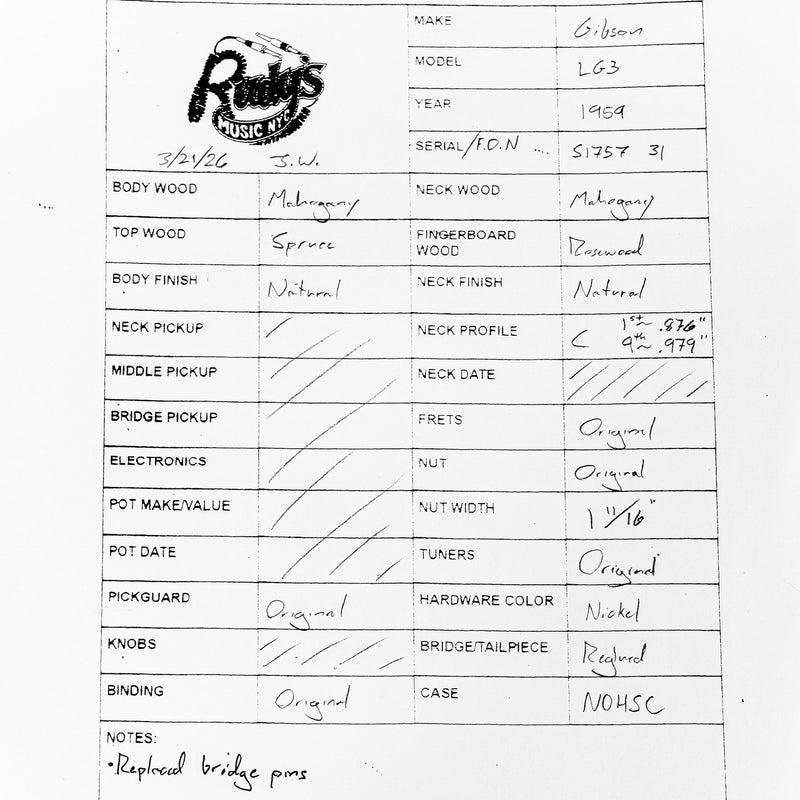 Rudy's
MUSIC NYC
3/21/26 J.W.
MAKE Gibson
MODEL LG3
YEAR 1959
SERIAL/F.O.N .... S1757 31
BODY WOOD Mahogany NECK WOOD Mahogany
TOP WOOD Spruce FINGERBOARD WOOD Rosewood
BODY FINISH Natural NECK FINISH Natural
NECK PICKUP NECK PROFILE C 1st~ .876"
9th~ .979"
MIDDLE PICKUP NECK DATE
BRIDGE PICKUP FRETS Original
ELECTRONICS NUT Original
POT MAKE/VALUE NUT WIDTH 1 11/16"
POT DATE TUNERS Original
PICKGUARD Original HARDWARE COLOR Nickel
KNOBS BRIDGE/TAILPIECE Reglued
BINDING Original CASE NOHSC
NOTES:
•Replaced bridge pins